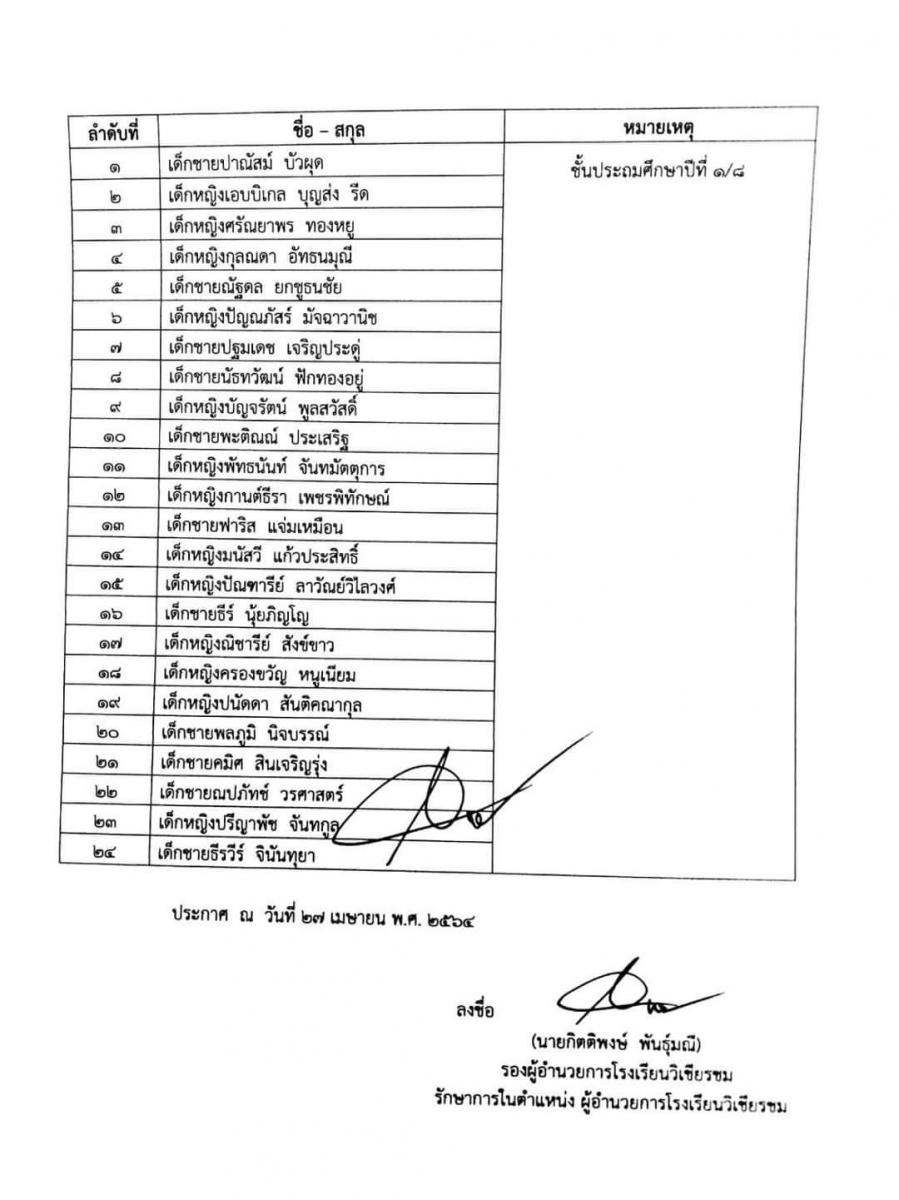 ลำดับที่ ชื่อ – สกุล หมายเหตุ
๑ เด็กชายปาณัสม์ บัวผุด ชั้นประถมศึกษาปีที่ ๑/๘
๒ เด็กหญิงเอบบิเกล บุญส่ง รีด
๓ เด็กหญิงศรัณยาพร ทองหยู
๔ เด็กหญิงกุลณดา อัทธนมุณี
๕ เด็กชายณัฐดล ยกชูธนชัย
๖ เด็กหญิงปัญณภัสร์ มัจฉาวานิช
๗ เด็กชายปฐมเดช เจริญประดู่
๘ เด็กชายนัธทวัฒน์ ฟักทองอยู่
๙ เด็กหญิงบัญจรัตน์ พูลสวัสดิ์
๑๐ เด็กชายพะติณณ์ ประเสริฐ
๑๑ เด็กหญิงพัทธนันท์ จันทมัตตุการ
๑๒ เด็กหญิงกานต์ธีรา เพชรพิทักษณ์
๑๓ เด็กชายฟาริส แจ่มเหมือน
๑๔ เด็กหญิงมนัสวี แก้วประสิทธิ์
๑๕ เด็กหญิงปัณฑารีย์ ลาวัณย์วิไลวงศ์
๑๖ เด็กชายธีร์ นุ้ยภิญโญ
๑๗ เด็กหญิงณิชารีย์ สังข์ขาว
๑๘ เด็กหญิงครองขวัญ หนูเนียม
๑๙ เด็กหญิงปนัดดา สันติคณากุล
๒๐ เด็กชายพลภูมิ นิจบรรณ์
๒๑ เด็กชายคมิศ สินเจริญรุ่ง
๒๒ เด็กชายณปภัทช์ วรศาสตร์
๒๓ เด็กหญิงปรีญาพัช จันทกูล
๒๔ เด็กชายธีรวีร์ จินันทุยา
ประกาศ ณ วันที่ ๒๗ เมษายน พ.ศ. ๒๕๖๔
ลงชื่อ
(นายกิตติพงษ์ พันธุ์มณี)
รองผู้อำนวยการโรงเรียนวิเชียรชม
รักษาการในตำแหน่ง ผู้อำนวยการโรงเรียนวิเชียรชม